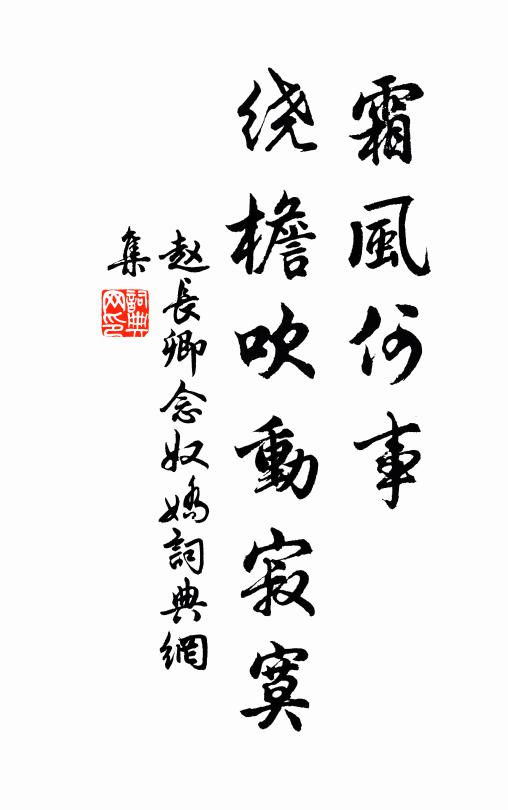 霜風何事
绕檐吹動寂寞
赵長卿念奴嬌詞典網
集
詞典
网印